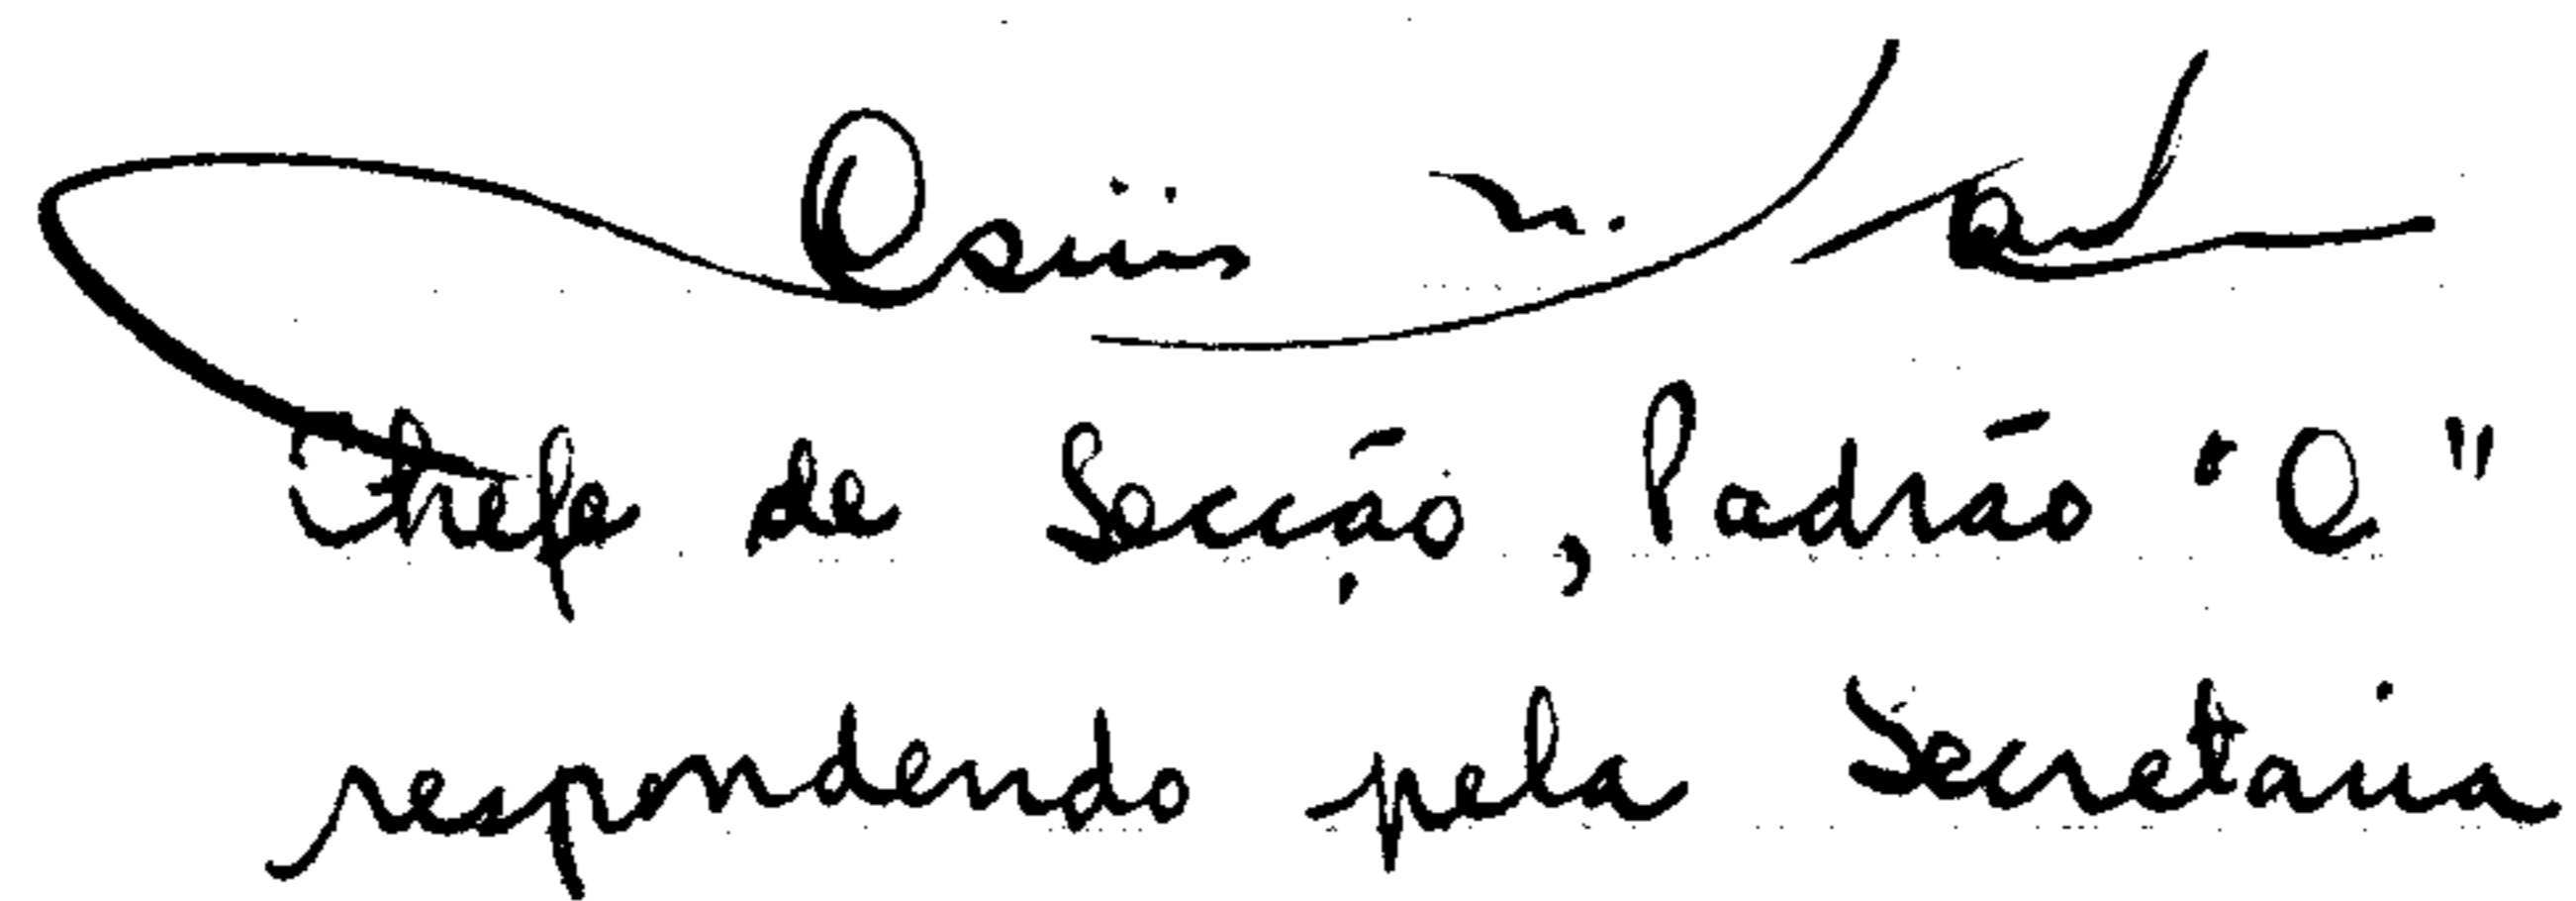 Chefe de Secção, Padrão "Q"
respondendo pela Secretaria